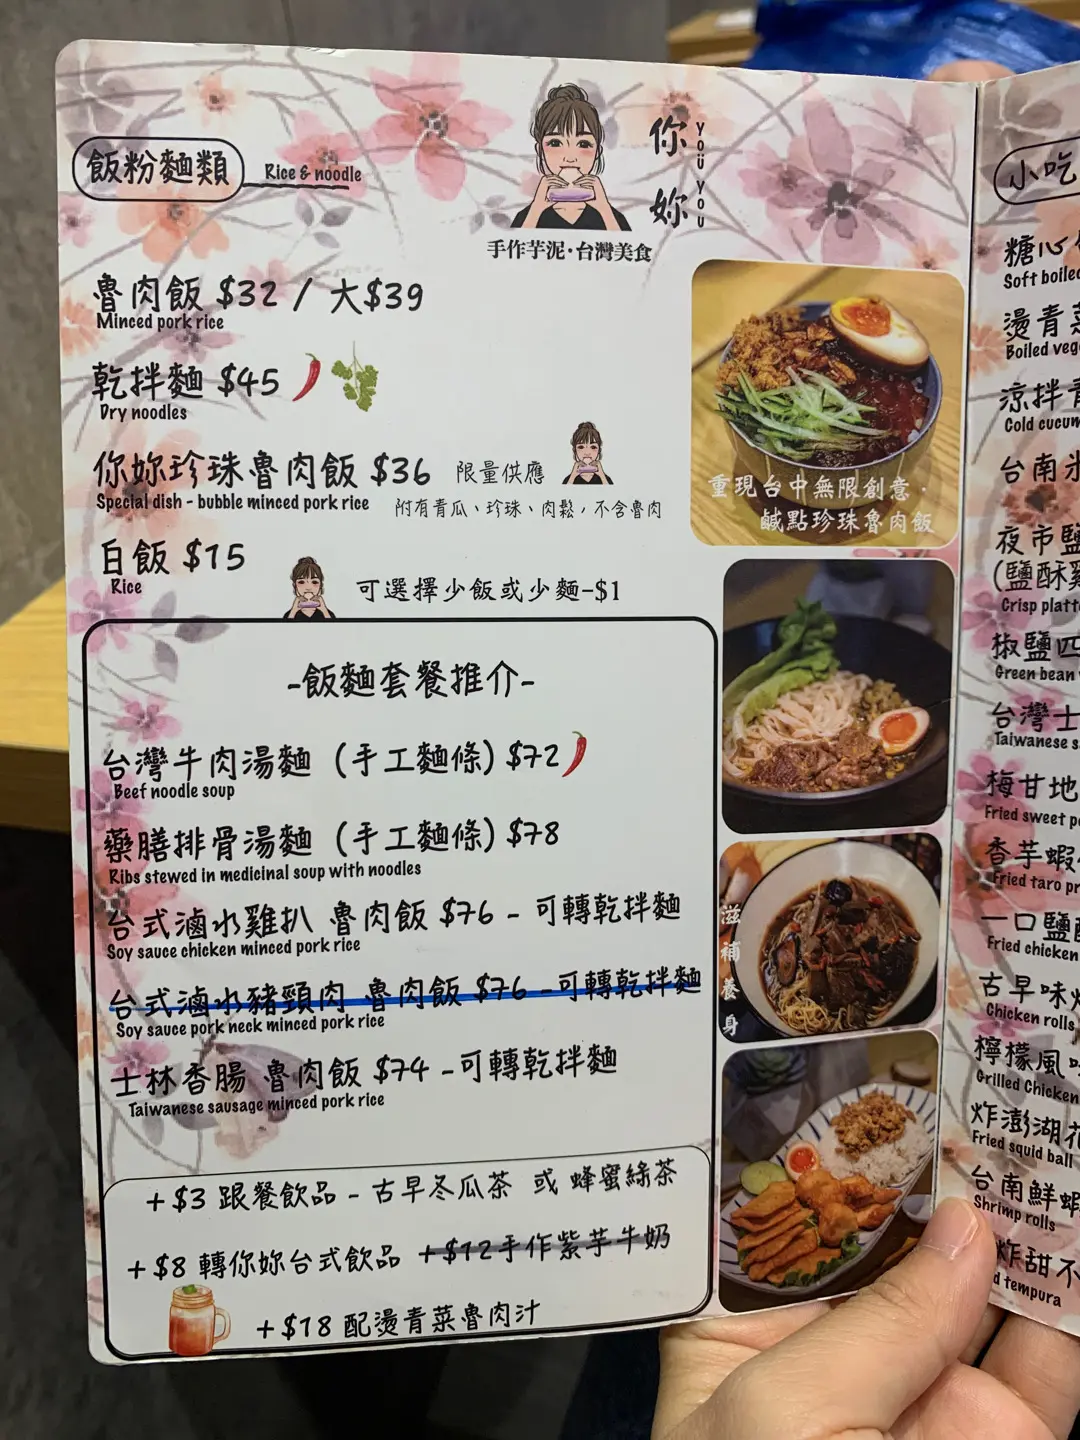 飯粉麵類 Rice & noodle
你妳 YOÜ YOU
手作芋泥·台灣美食
魯肉飯 $32 / 大$39
Minced pork rice
乾拌麵 $45
Dry noodles
你妳珍珠魯肉飯 $36 限量供應
Special dish - bubble minced pork rice 附有青瓜、珍珠、肉鬆，不含魯肉
白飯 $15
Rice
可選擇少飯或少麵-$1
-飯麵套餐推介-
台灣牛肉湯麵 (手工麵條) $72
Beef noodle soup
藥膳排骨湯麵 (手工麵條) $78
Ribs stewed in medicinal soup with noodles
台式滷水雞扒 魯肉飯 $76 - 可轉乾拌麵
Soy sauce chicken minced pork rice
台式滷水豬頸肉 魯肉飯 $76 -可轉乾拌麵
Soy sauce pork neck minced pork rice
士林香腸 魯肉飯 $74 -可轉乾拌麵
Taiwanese sausage minced pork rice
+$3 跟餐飲品 - 古早冬瓜茶 或 蜂蜜綠茶
+$8 轉你妳台式飲品 +$12手作紫芋牛奶
+$18 配燙青菜魯肉汁
重現台中無限創意·
鹹點珍珠魯肉飯
滋補養身
小吃
糖心
Soft boiled
燙青菜
Boiled veg
涼拌青
Cold cucum
台南米
夜市鹽
(鹽酥雞
Crisp platt
椒鹽四
Green bean
台灣士
Taiwanese s
梅甘地
Fried sweet p
香芋蝦
Fried taro pr
一口鹽酥
Fried chicken
古早味
Chicken rolls
檸檬風味
Grilled Chicken
炸澎湖花
Fried squid ball
台南鮮蝦
Shrimp rolls
炸甜不
d tempura